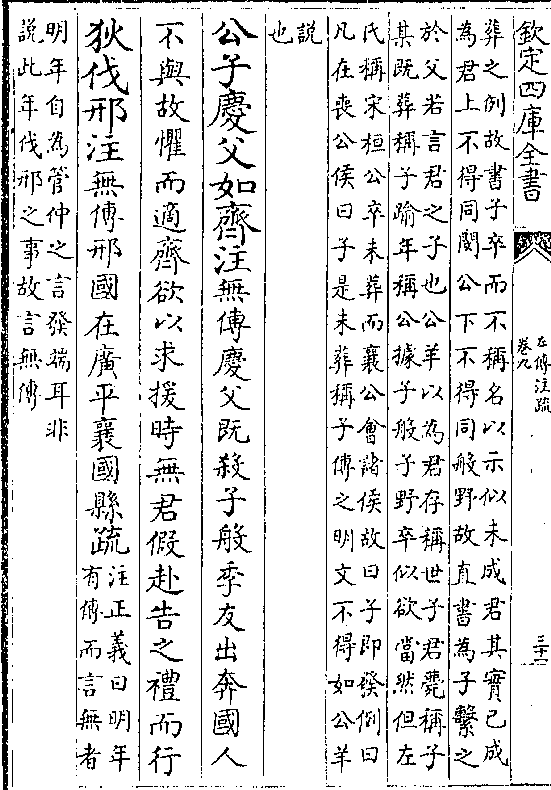 欽定四庫全書
左傳注疏
卷九
三十一
葬之例故書子卒而不稱名以示似未成君其實已成
為君上不得同閔公下不得同般野故直書為子繫之
於父若言君之子也公羊以為君存稱世子君薨稱子
某既葬稱子踰年稱公據子般子野卒似欲當然但左
氏稱宋桓公卒未葬而襄公會諸侯故曰子即發例曰
凡在喪公侯曰子是未葬稱子傳之明文不得如公羊
説
也
公子慶父如齊注無傳慶父既殺子般季友出奔國人
不與故懼而適齊欲以求援時無君假赴告之禮而行
狄伐邢注無傳邢國在廣平襄國縣疏注正義曰明年
有傳而言無者
明年自為管仲之言發端耳非
說此年伐邢之事故言無傳